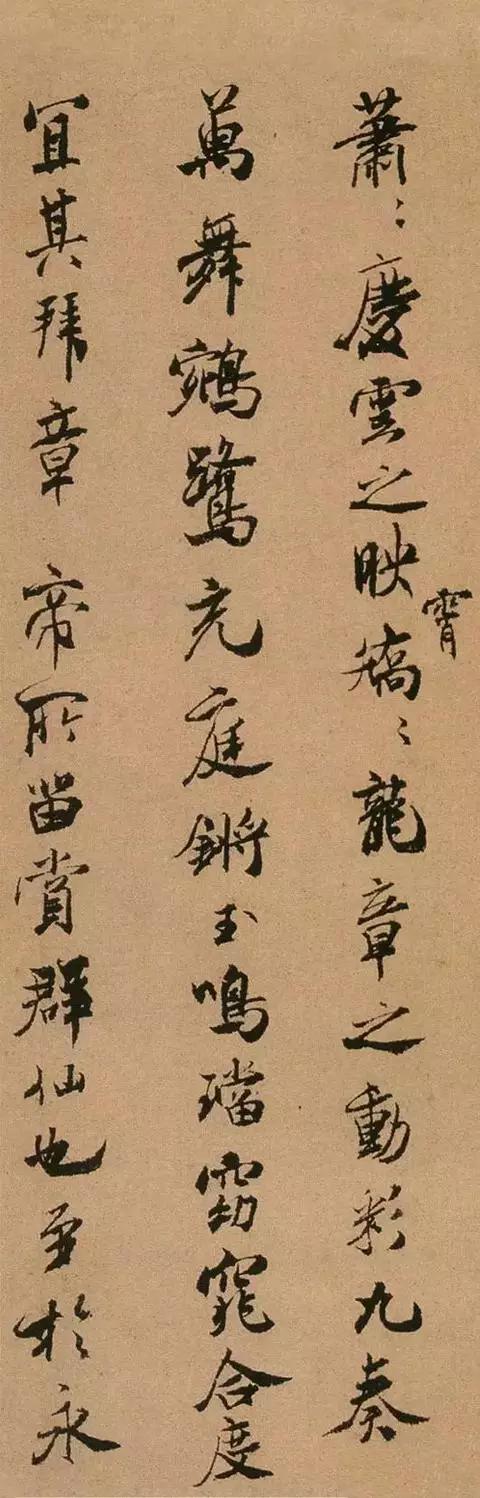 蕭〻慶雲之映霄矯〻龍章之動彩九奏
萬舞鵷鷺充庭鏘玉鳴璫窈窕合度
宜其拜章 帝所留賞群仙也至於永